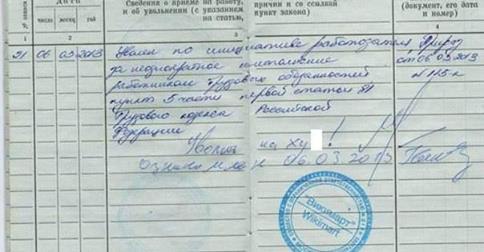 Дата
Сведения о приеме на работу,
и об увольнении (с указанием
причин и со ссылкой
на статью,
пункт закона)
(документ, его дата
и номер)
№ записи
число
месяц
год
1
2
3
4
21 06 03 2013 Уволен по инициативе работодателя Приказ
за неоднократное неисполнение от 06.03.2013
работником трудовых обязанностей №115-к
пункт 5 части первой статьи 81
Трудового кодекса Российской
Федерации
на ху !
Ознакомлен 06.03.2013
Викимарт
Wikimart